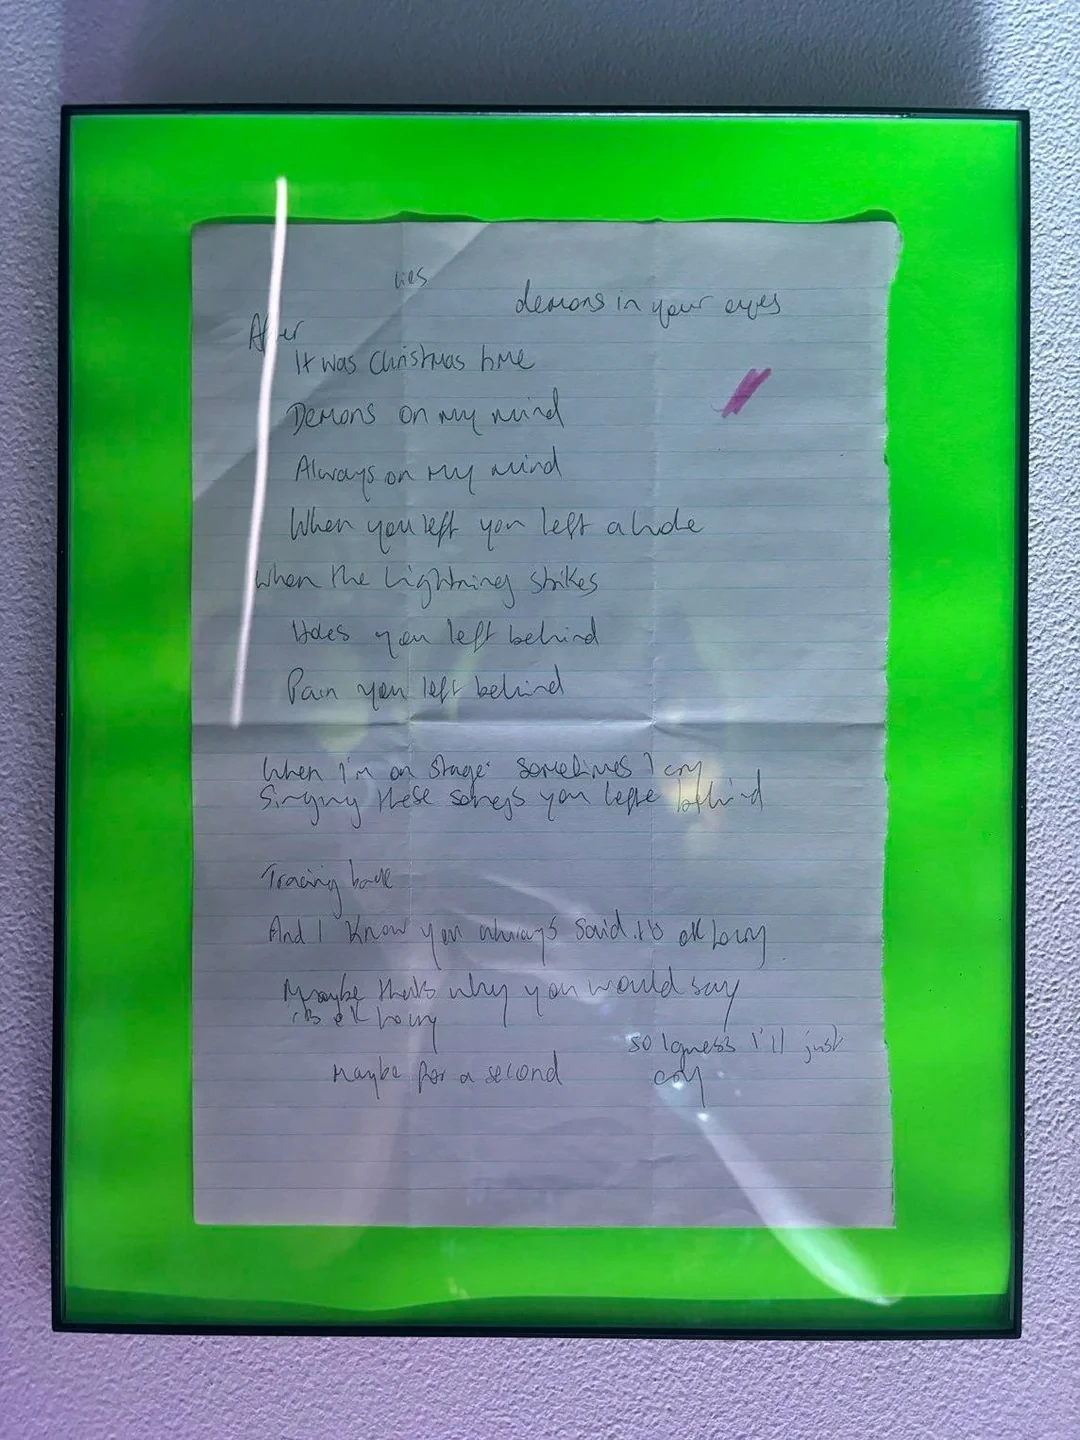 lies
demons in your eyes
After
It was Christmas time
Demons on my mind
Always on my mind
When you left you left a hole
When the Lightning strikes
Holes you left behind
Pain you left behind
When I'm on stage sometimes I cry
Singing these songs you left behind
Tracing back
And I know you always said its ok
Maybe thats why you would say
its ok
so I guess I'll just
Maybe for a second cry